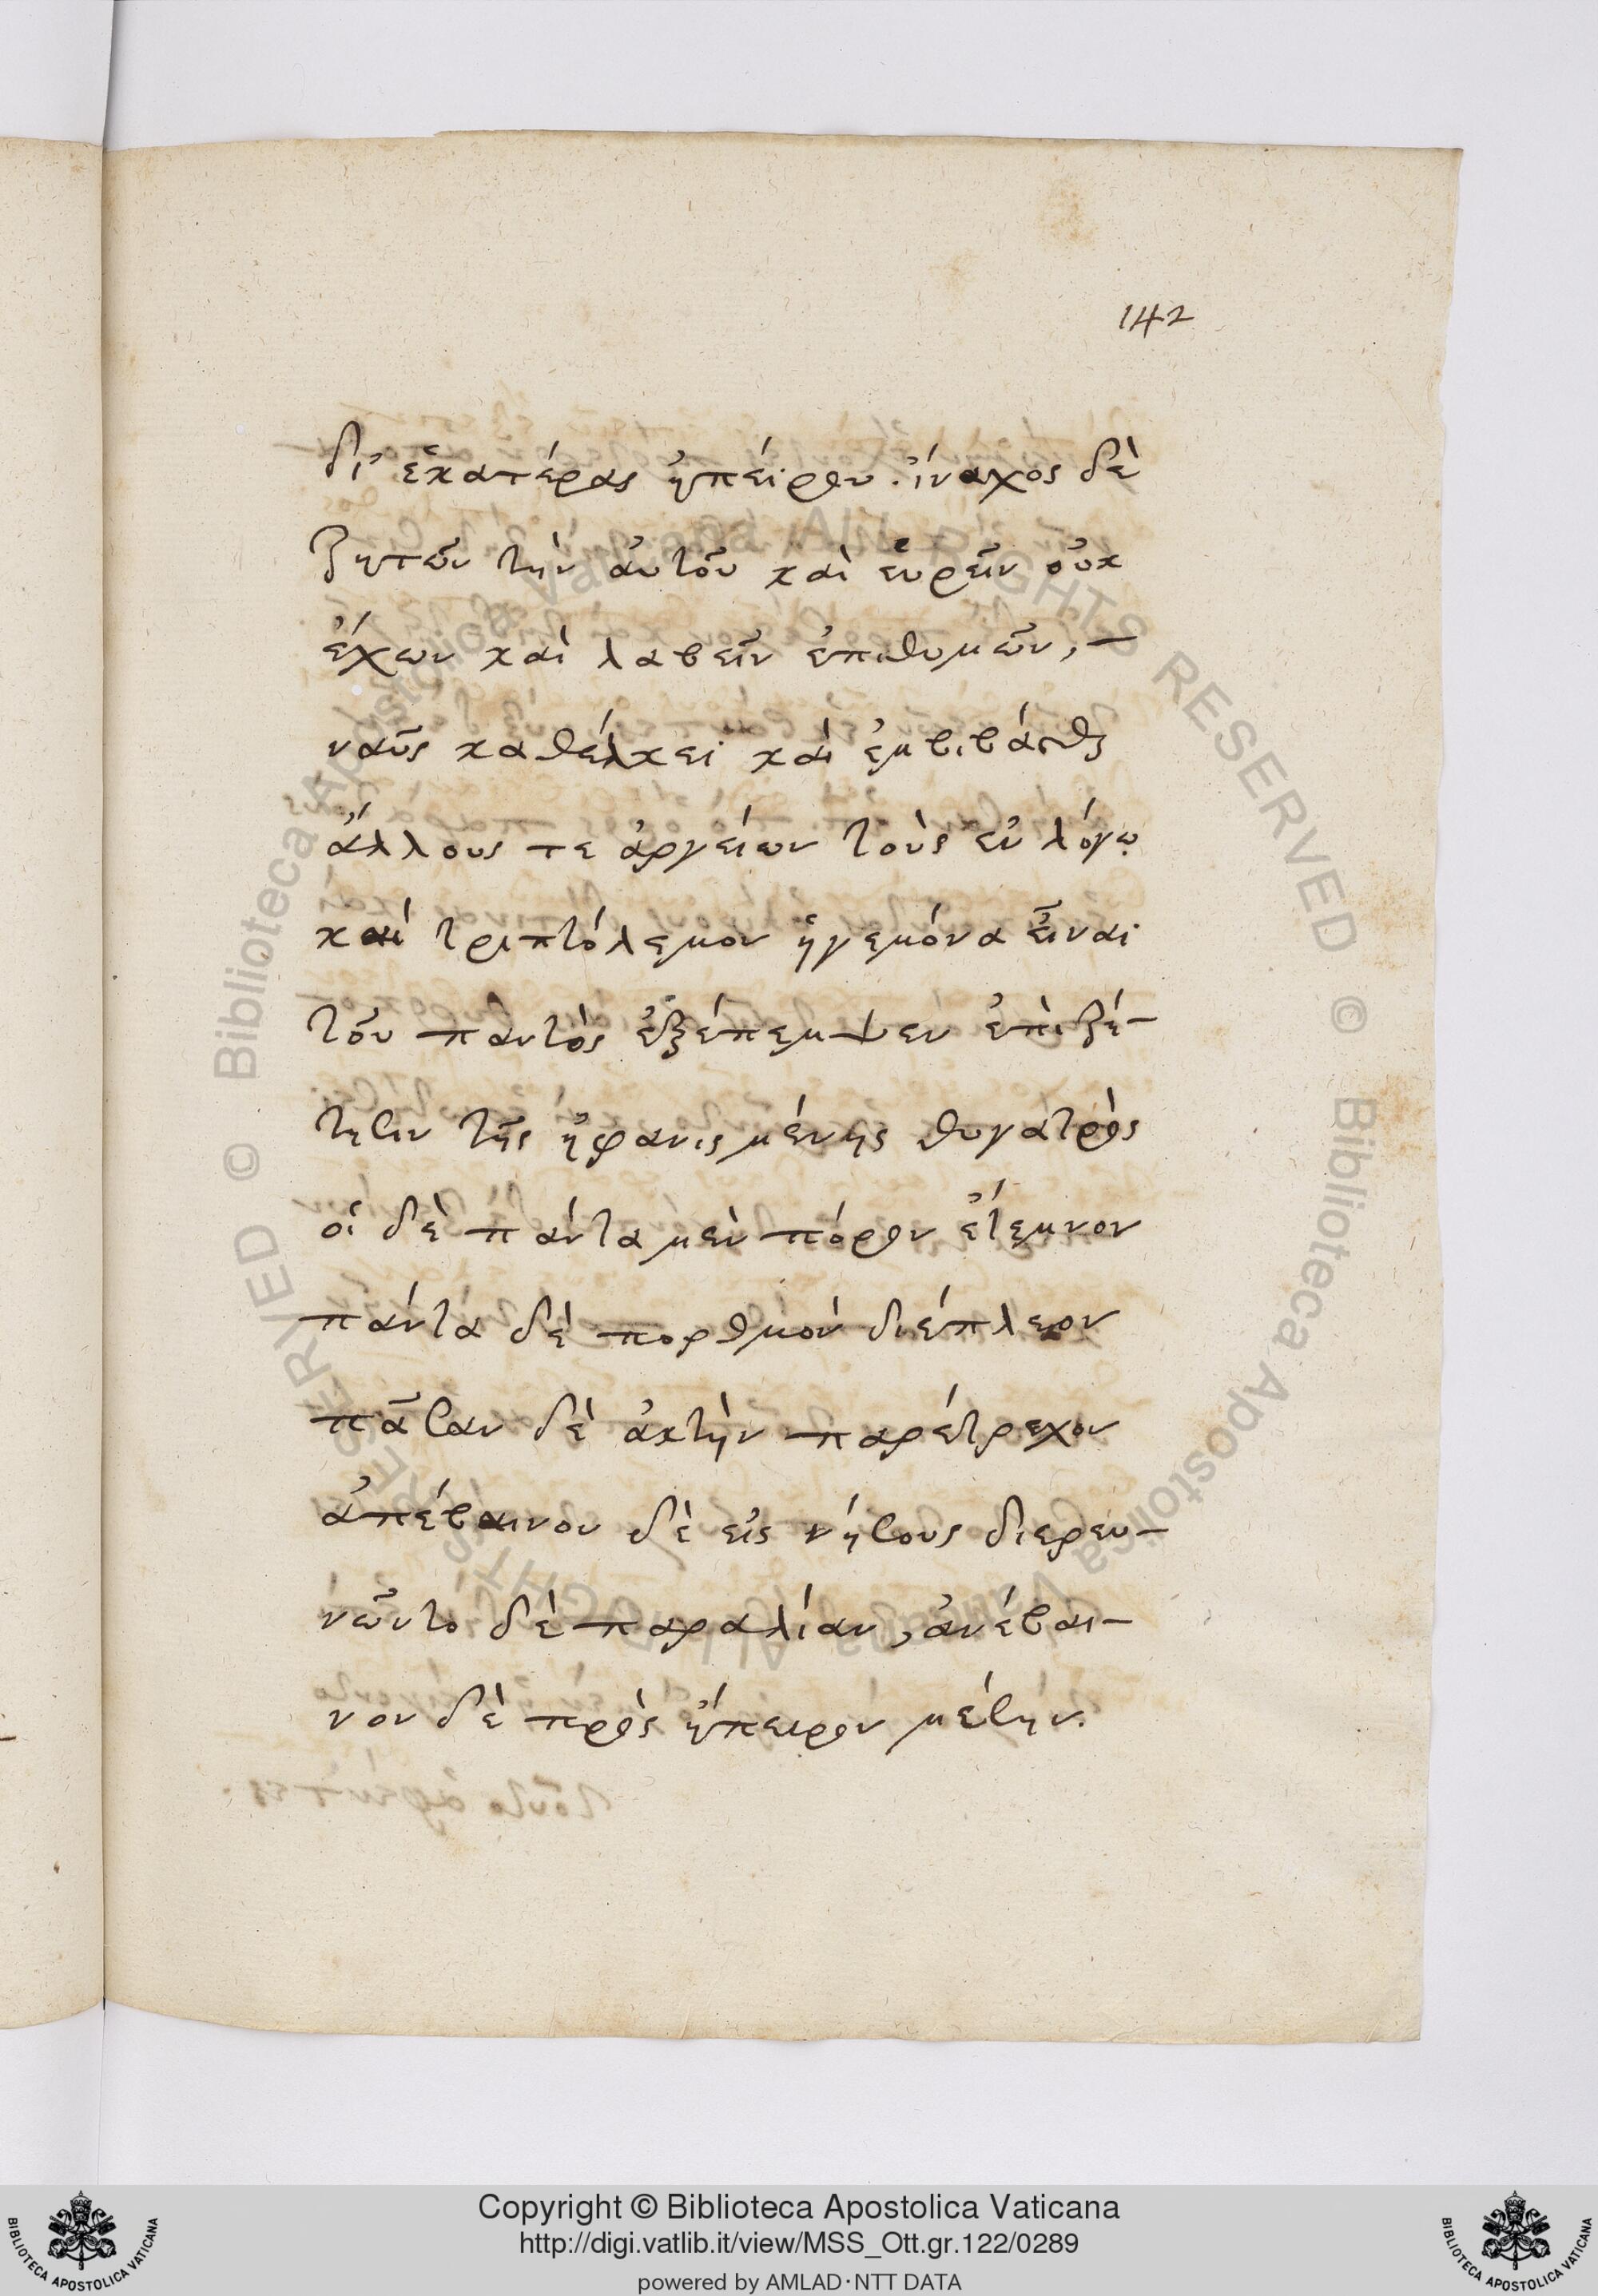 142
δι' ἑκατέρας ἠπείρου. ἴναχος δὲ
ζητῶν τὴν αὐτοῦ καὶ εὑρεῖν οὐκ
ἔχων καὶ λαβεῖν ἐπιθυμῶν, –
ναῦς καθέλκει καὶ ἐμβιβάσας
ἄλλους τε ἀργείων τοὺς ἐν λόγῳ
καὶ τριπτόλεμον ἡγεμόνα εἶναι
τοῦ παντὸς ἐξέπεμψεν ἐπὶ ζή–
τησιν τῆς ἠφανισμένης θυγατρὸς
οἱ δὲ πάντα μὲν πόρον ἔτεμνον
πάντα δὲ πορθμὸν διέπλεον
πᾶσαν δὲ ἀκτὴν παρέτρεχον
ἀπέβαινον δὲ εἰς νήσους διερευ–
νῶντο δὲ παραλίαν, ἀνέβαι–
νον δὲ πρὸς ἤπειρον μέσην.
© Biblioteca Apostolica Vaticana ALL RIGHTS RESERVED
© Biblioteca Apostolica Vaticana ALL RIGHTS RESERVED
Copyright © Biblioteca Apostolica Vaticana
http://digi.vatlib.it/view/MSS_Ott.gr.122/0289
powered by AMLAD·NTT DATA
BIBLIOTECA APOSTOLICA VATICANA
BIBLIOTECA APOSTOLICA VATICANA